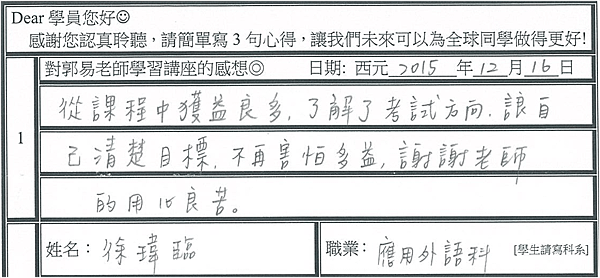 Dear 學員您好☺
感謝您認真聆聽，請簡單寫 3 句心得，讓我們未來可以為全球同學做得更好!
對郭易老師學習講座的感想◎ 日期: 西元 2015 年 12 月 16 日
1
從課程中獲益良多，了解了考試方向，讓自
己清楚目標，不再害怕多益，謝謝老師
的用心良苦。
姓名： 徐瑋臨 職業： 應用外語科 [學生請寫科系]